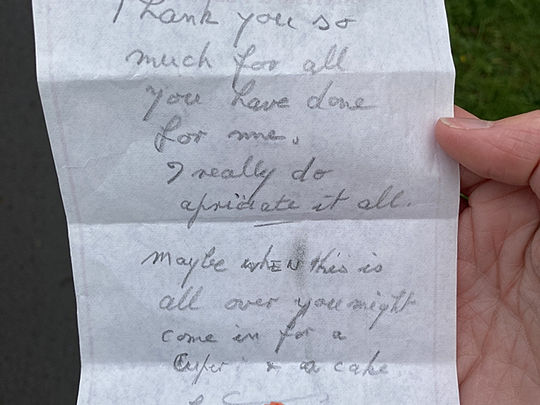 Thank you so
much for all
you have done
for me.
I really do
apriciate it all.
Maybe WHEN this is
all over you might
come in for a
& a cake